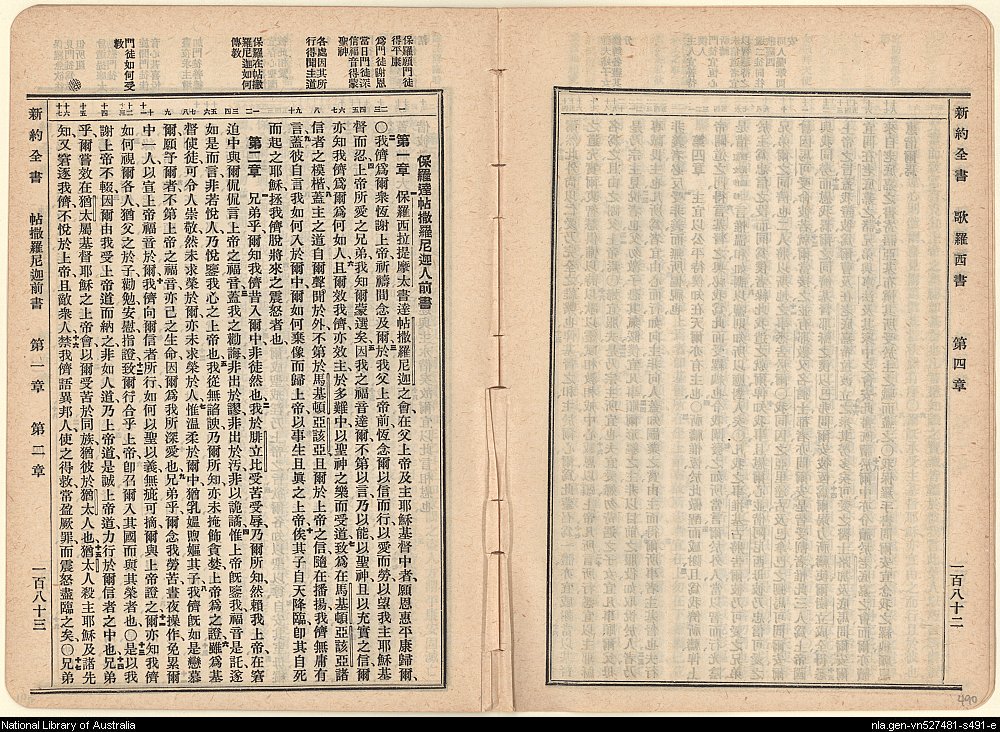 新約全書 歌羅西書 第四章 一百八十二
保羅願門徒
得平康
爲門徒謝恩
當日門徒深
信福音得蒙
聖神
各處因其所
行得聞主道
保羅在帖撒
羅尼迦如何
傳教
門徒如何受
教
保羅達帖撒羅尼迦人前書
第一章 保羅西拉提摩太書達帖撒羅尼迦之會在父上帝及主耶穌基督中者願恩惠平康歸爾
〇我儕爲爾衆恆謝上帝祈禱間念及爾於我父上帝前恆念爾以信而行以愛而勞以望我主耶穌基
督而忍上帝所愛之兄弟我知爾蒙選矣因我之福音達爾不第以言乃以能以聖神且以充實之信爾
亦知我儕爲爾爲何如人且爾效我儕亦效主於多難中以聖神之樂而受道致爲在馬基頓亞該亞諸
信者之模楷蓋主之道自爾聲聞於外不第於馬基頓亞該亞且爾於上帝之信隨在播揚我儕無庸有
言蓋彼自言我如何入於爾中爾如何棄像而歸上帝以事生且眞之上帝俟其子自天降臨卽其自死
而起之耶穌拯我儕脫將來之震怒者也
第二章 兄弟乎爾知我儕昔入爾中非徒然也我於腓立比受苦受辱乃爾所知然賴我上帝在窘
迫中與爾侃侃言上帝之福音蓋我之勸誨非出於謬非出於汚非以詭譎惟上帝旣鑒我福音是託遂
如是而言非若悅人乃悅鑒我心之上帝也我從無諂諛乃爾所知亦未掩飾貪婪上帝爲之證雖爲基
督使徒可令人崇敬然未求榮於爾亦未求榮於人惟溫柔於爾中猶乳媼煦嫗其子我儕旣如是戀慕
爾願予爾者不第上帝之福音亦己之生命因爾爲我所深愛也兄弟乎爾念我勞苦晝夜操作免累爾
中一人以宣上帝福音於爾我儕向爾信者所行如何以聖以義無疵可摘爾與上帝證之爾亦知我儕
如何視爾各人猶父之於子勸勉安慰指證致爾行合乎上帝卽召爾入其國而與其榮者也〇是以我
謝上帝不輟因爾由我受上帝道而納之非如人道乃上帝道是誠上帝道力行於爾信者之中也兄弟
乎爾嘗效在猶太屬基督耶穌之上帝會以爾受苦於同族猶彼於猶太人也猶太人殺主耶穌及諸先
知又窘逐我儕不悅於上帝且敵衆人禁我儕語異邦人使之得救常盈厥罪而震怒盡臨之矣〇兄弟
新約全書 帖撒羅尼迦前書 第一章 第二章 一百八十三
490
National Library of Australia
nla.gen-vn527481-s491-e